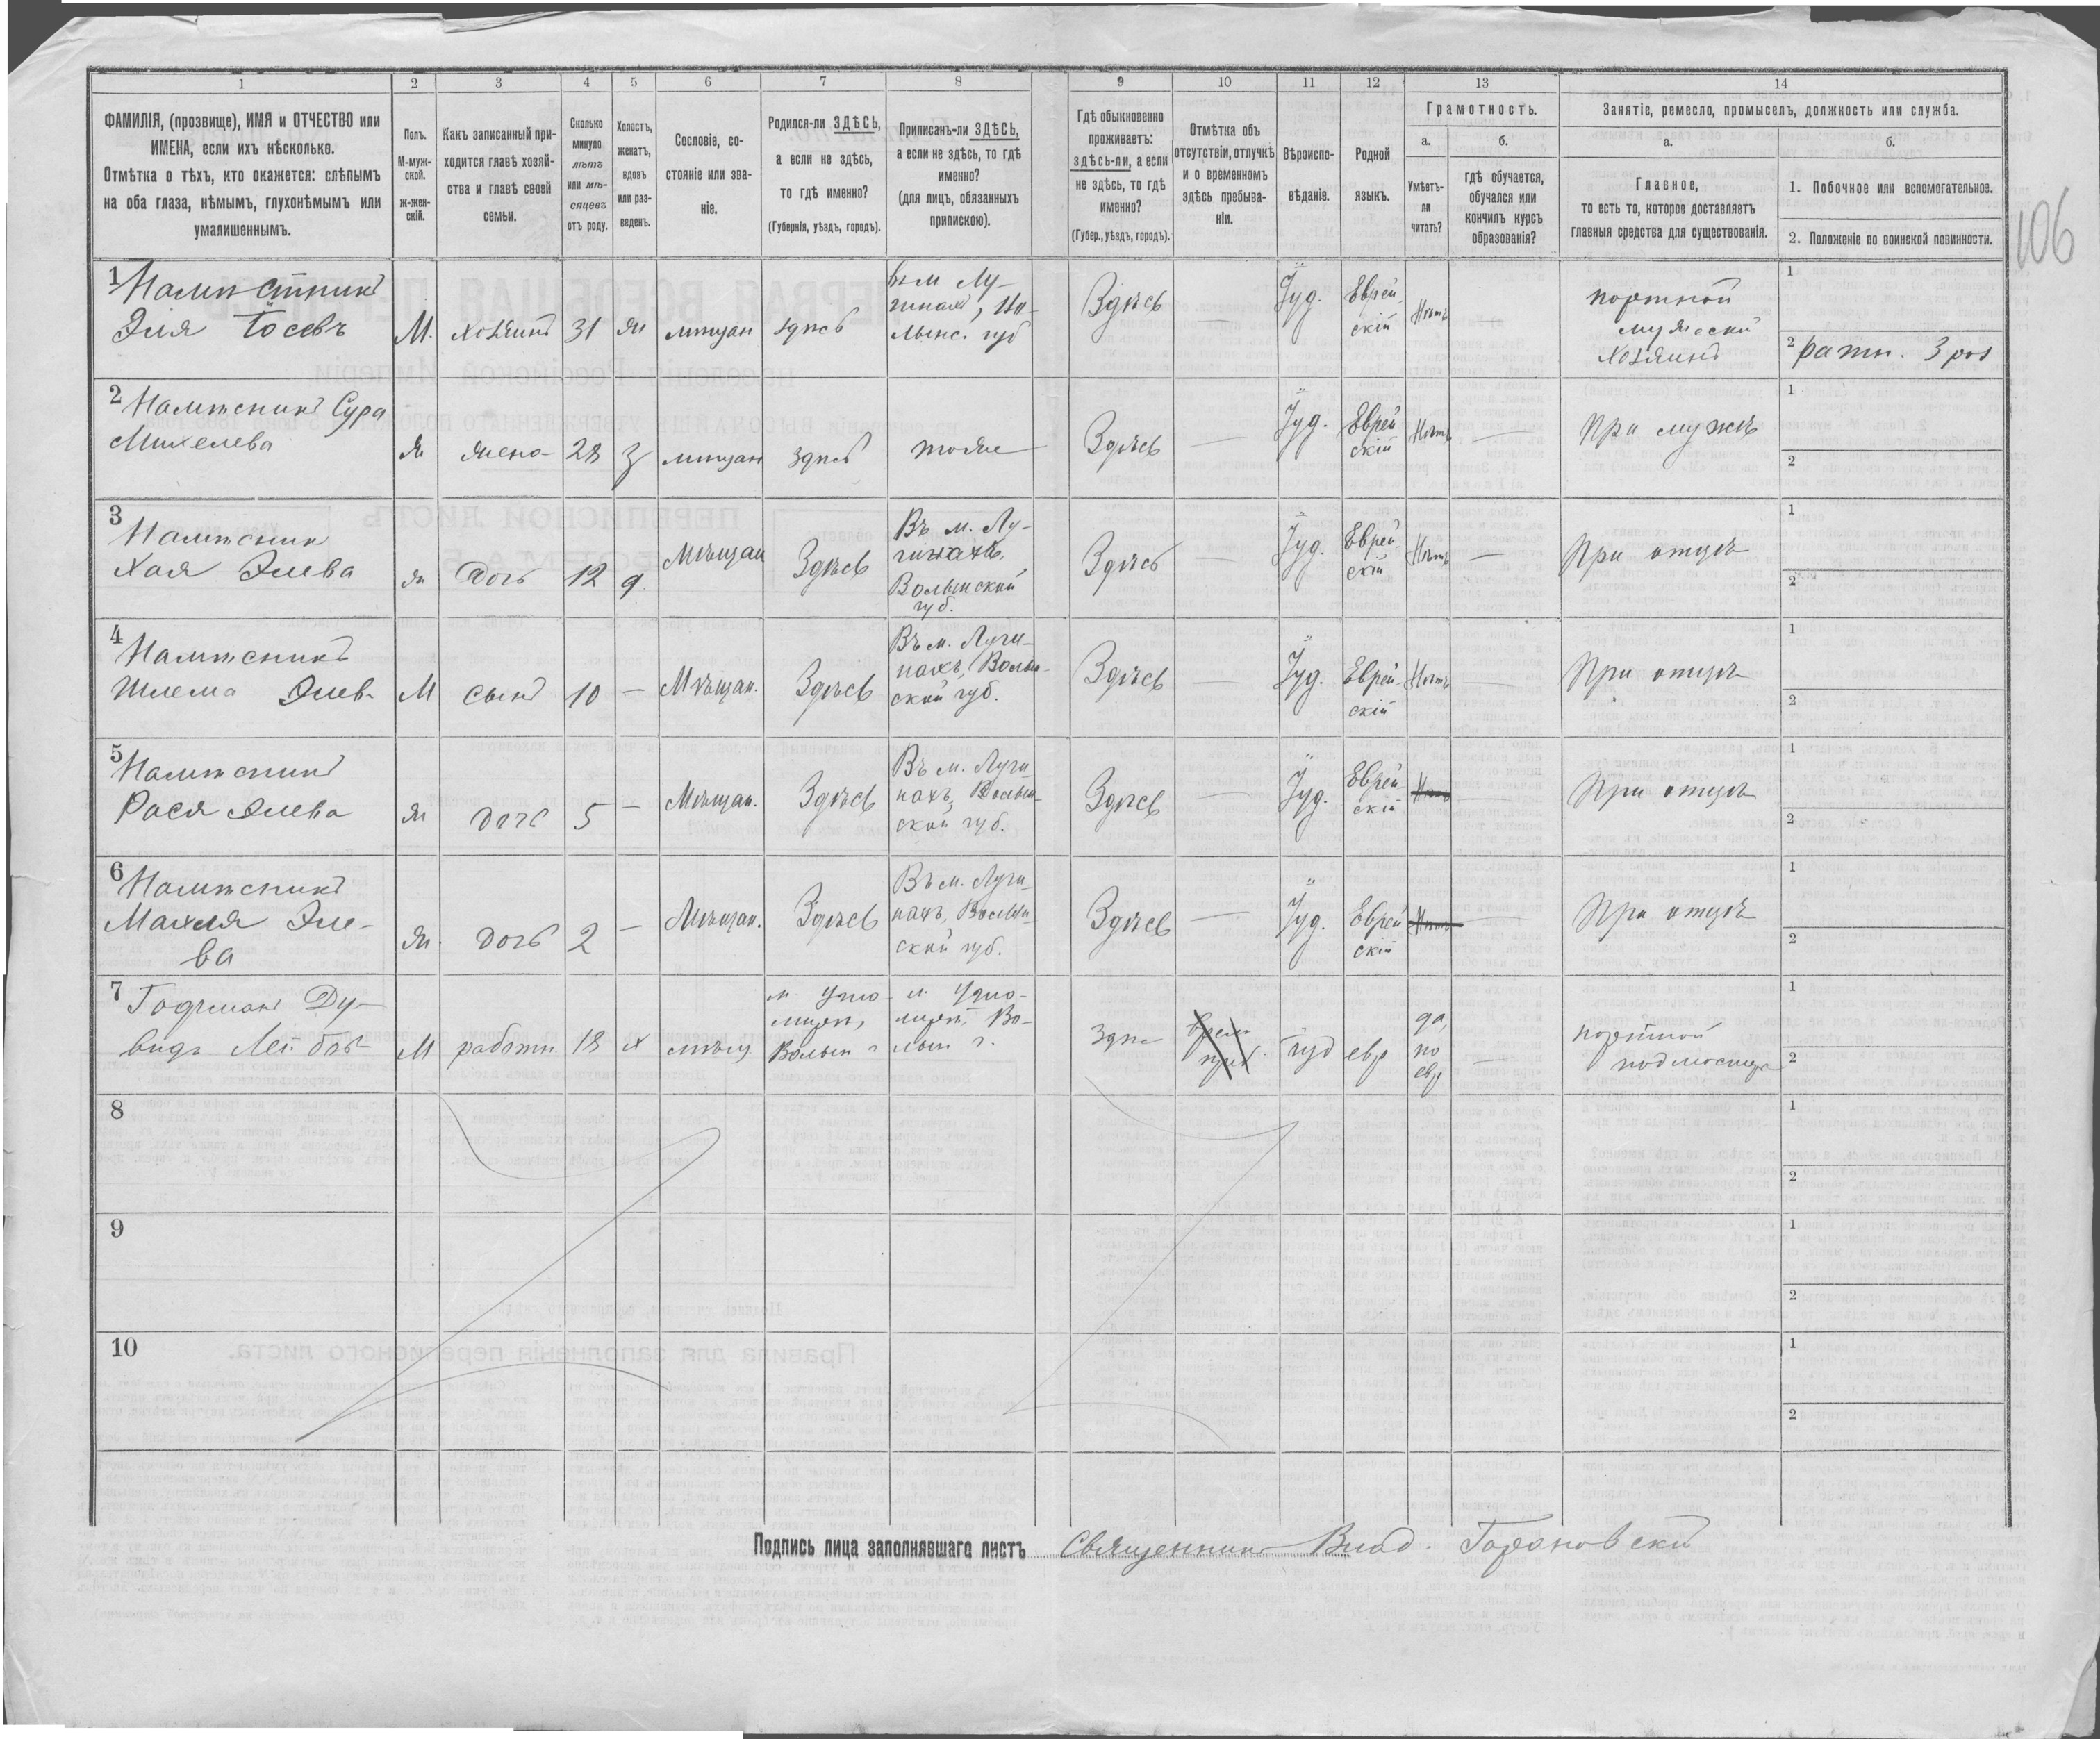 1 2 3 4 5 6 7 8 9 10 11 12 13 14
ФАМИЛІЯ, (прозвище), ИМЯ и ОТЧЕСТВО или
ИМЕНА, если ихъ нѣсколько.
Отмѣтка о тѣхъ, кто окажется: слѣпымъ
на оба глаза, нѣмымъ, глухонѣмымъ или
умалишеннымъ.
Полъ.
М-муж-
ской.
ж-жен-
скій.
Какъ записанный при-
ходится главѣ хозяй-
ства и главѣ своей
семьи.
Сколько
минуло
лѣтъ
или мѣ-
сяцевъ
отъ роду.
Холостъ,
женатъ,
вдовъ
или раз-
веденъ.
Сословіе, со-
стояніе или зва-
ніе.
Родился-ли ЗДѢСЬ,
а если не здѣсь,
то гдѣ именно?
(Губернія, уѣздъ, городъ).
Приписанъ-ли ЗДѢСЬ,
а если не здѣсь, то гдѣ
именно?
(для лицъ, обязанныхъ
припискою).
Гдѣ обыкновенно
проживаетъ:
здѣсь-ли, а если
не здѣсь, то гдѣ
именно?
(Губер., уѣздъ, городъ).
Отмѣтка объ
отсутствіи, отлучкѣ
и о временномъ
здѣсь пребыва-
ніи.
Вѣроиспо-
вѣданіе.
Родной
языкъ.
Грамотность.
а.
Умѣетъ-
ли
читать?
б.
гдѣ обучается,
обучался или
кончилъ курсъ
образованія?
Занятіе, ремесло, промыселъ, должность или служба.
а.
Главное,
то есть то, которое доставляетъ
главныя средства для существованія.
б.
1. Побочное или вспомогательное.
2. Положеніе по воинской повинности.
106
1
Эля Іосевъ
М. хозяинъ 31 ж мѣщан здѣсь
Здѣсь — Іуд. Еврей-
скій
Нѣтъ —
портной
мужеский
хозяинъ
1
2 ратн. 3 раз
2
Сура
Михелева
ж жена 28 З мѣщан здѣсь тоже
Здѣсь — Іуд. Еврей
скій
Нѣтъ —
При мужѣ
1
2
3
Хая Элева
ж Дочь 12 д Мѣщан Здѣсь
Въ м. Лу-
гинахъ,
Волынской
губ.
Здѣсь — Іуд. Еврей
скій
Нѣтъ —
При отцѣ
1
2
4
Шлема Элев.
М сынъ 10 — Мѣщан. Здѣсь
Въ м. Луги-
нахъ, Волын-
ской губ.
Здѣсь — Іуд. Еврей-
скій
Нѣтъ —
При отцѣ
1
2
5
Рася Элева
ж дочь 5 — Мѣщан. Здѣсь
Въ м. Луги
нахъ, Волын-
ской губ.
Здѣсь — Іуд. Еврей
скій
Нѣтъ —
При отцѣ
1
2
6
Махля Эле-
ва
ж. дочь 2 — Мѣщан. Здѣсь
Въ м. Луги-
нахъ, Волын-
ской губ.
Здѣсь — Іуд. Еврей
скій
Нѣтъ —
При отцѣ
1
2
7 Гофман Ду-
видъ
М работн. 18 х мѣщ
Іуд евр
да,
по
евр
—
портной
подмастер
1
2
8
1
2
9
1
2
10
1
2
Подпись лица заполнявшаго листъ Священникъ Влад.